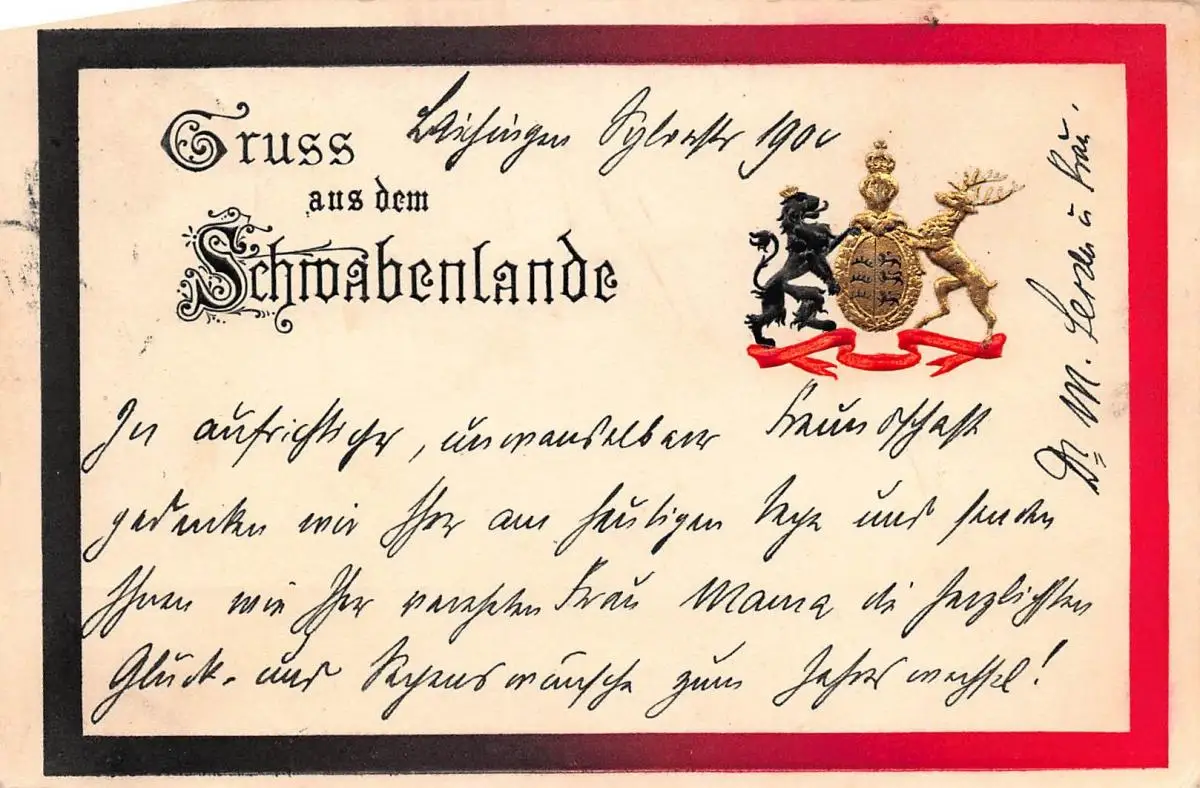 Gruss
aus dem
Schwabenlande
Laichingen Sylvester 1900
In aufrichtiger, unwandelbarer Freundschaft
gedenken wir Ihrer am heutigen Tage und senden
Ihnen wie Ihrer verehrten Frau Mama die herzlichsten
Glück- und Segenswünsche zum Jahreswechsel!
Dr. M. u. Frau.